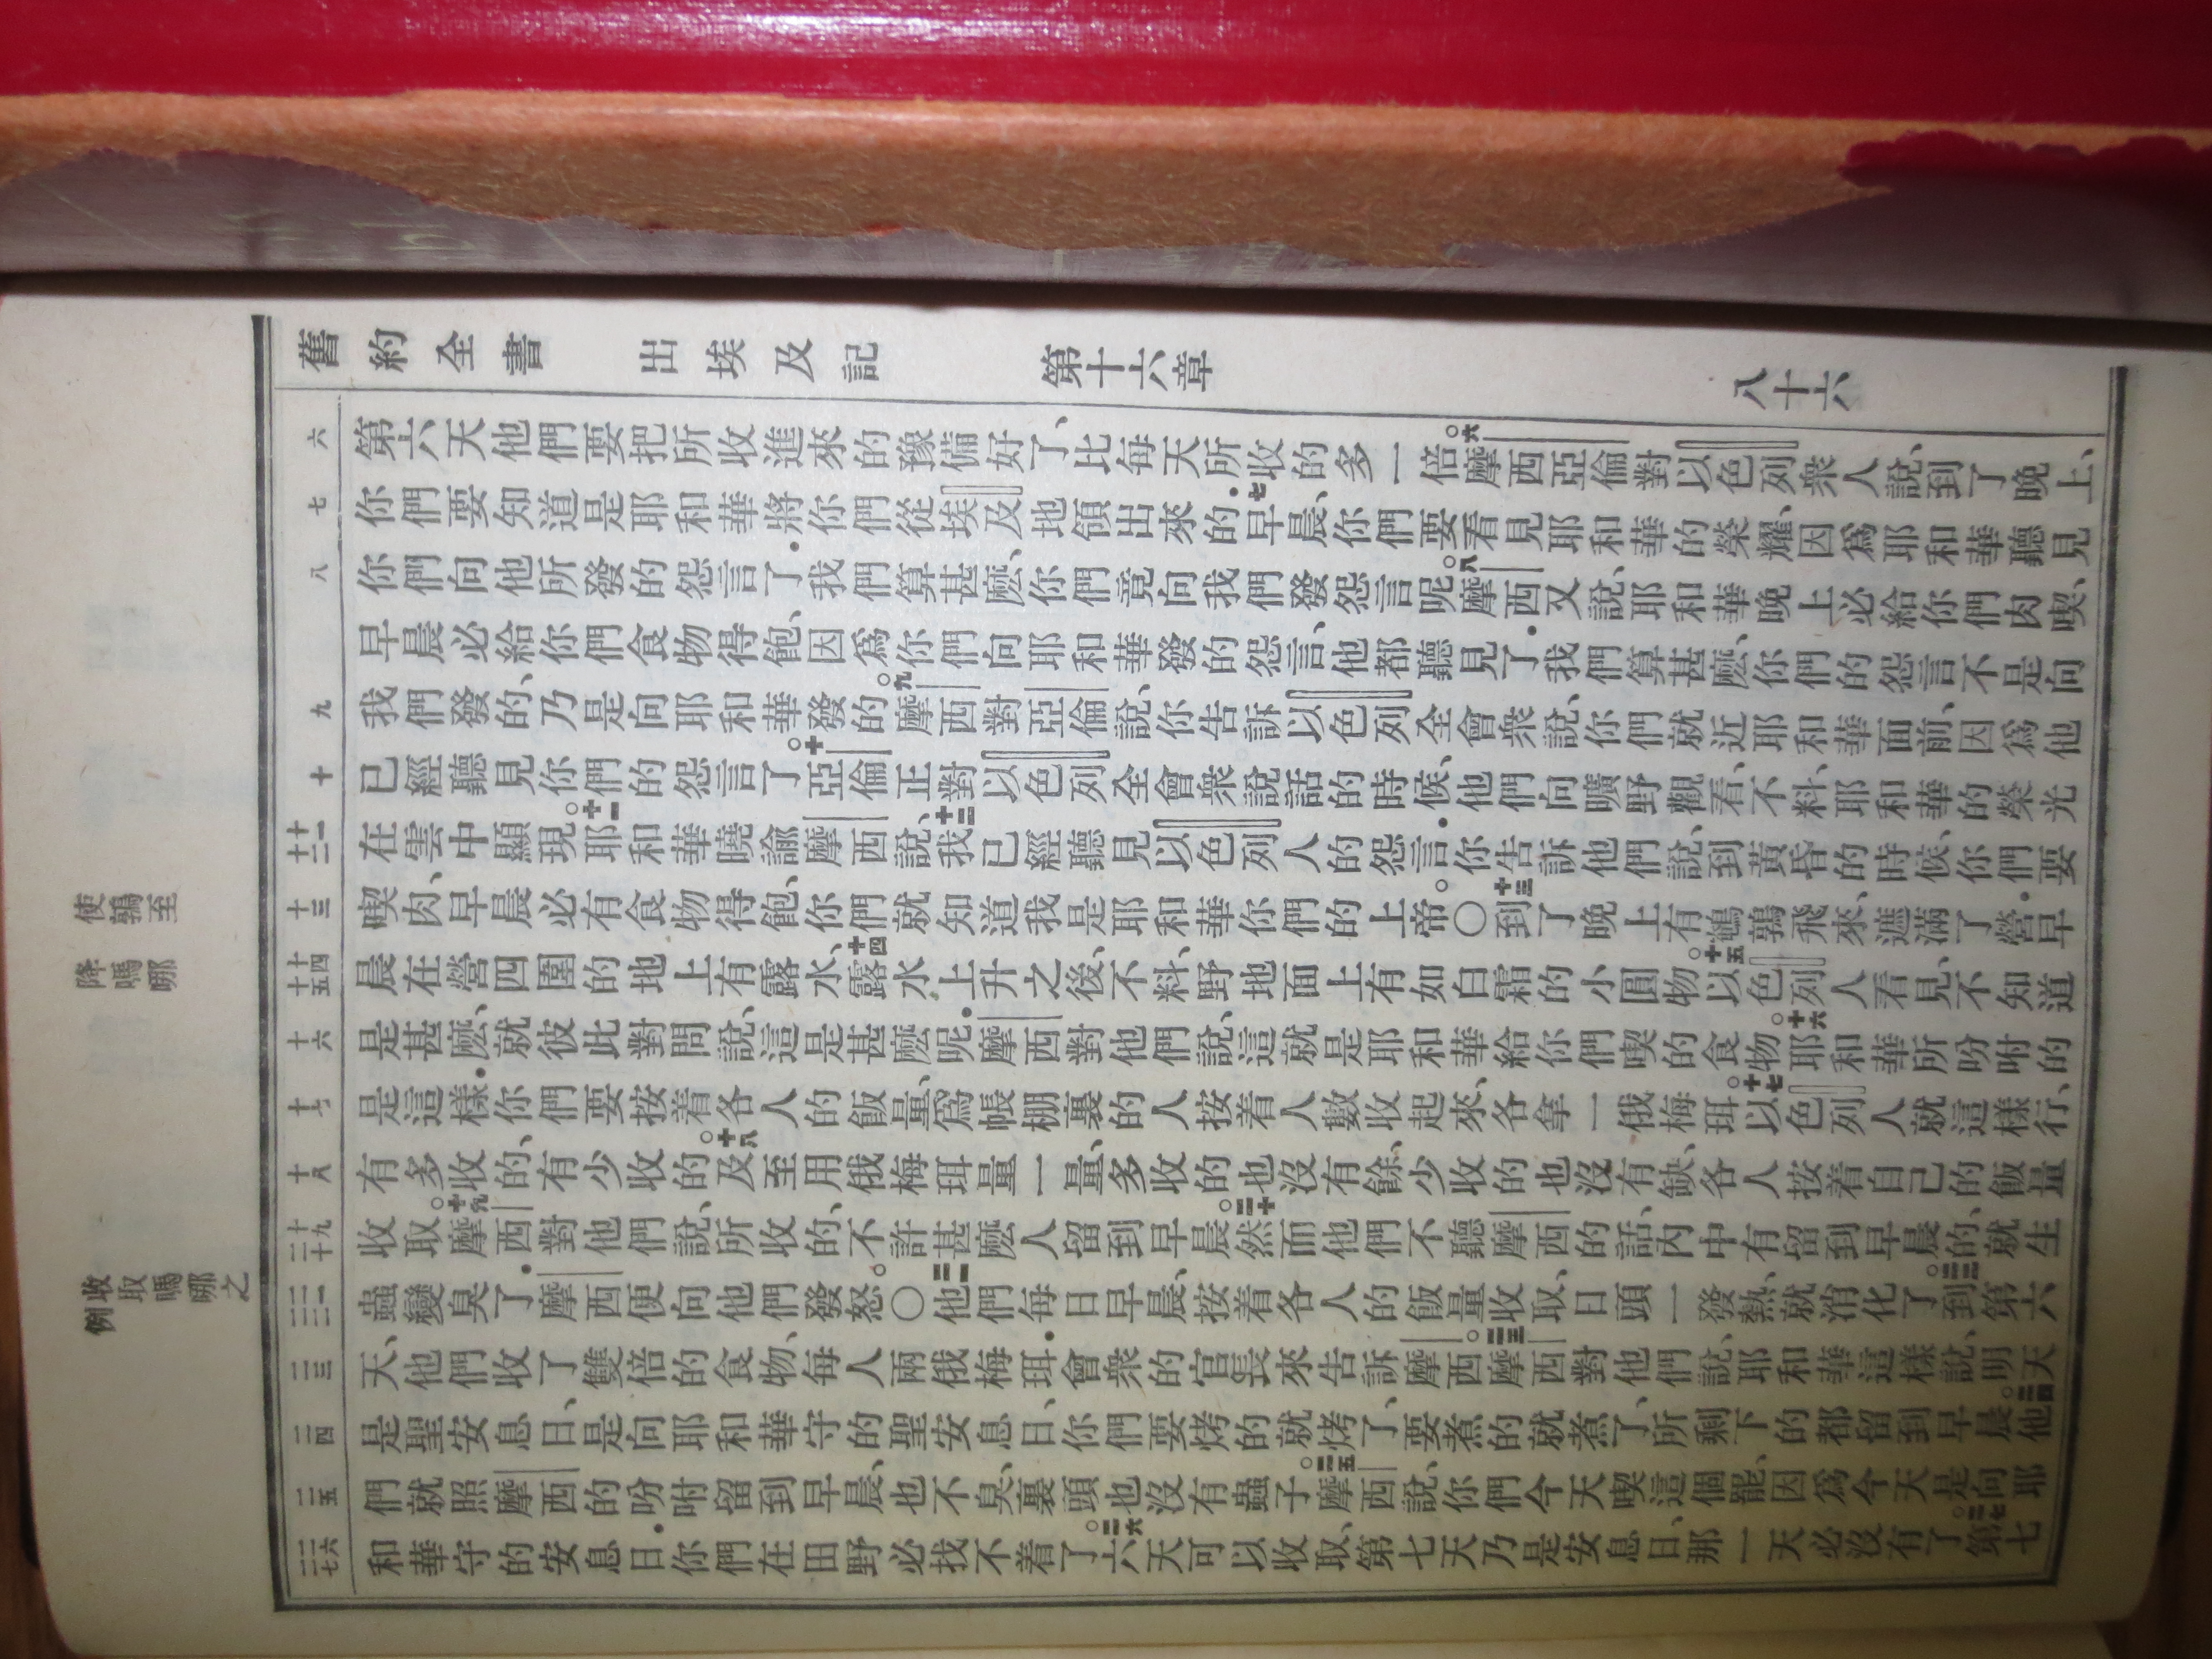 舊約全書 出埃及記 第十六章 八十六
使鶉至
降嗎哪
收取嗎哪之
例
六
七
八
九
十
十一
十二
十三
十四
十五
十六
十七
十八
十九
二十
二一
二二
二三
二四
二五
二六
二七
第六天他們要把所收進來的豫備好了、比每天所收的多一倍。六摩西亞倫對以色列衆人說、到了晚上、
你們要知道是耶和華將你們從埃及地領出來的．七早晨、你們要看見耶和華的榮耀、因爲耶和華聽見
你們向他所發的怨言了．我們算甚麽、你們竟向我們發怨言呢。八摩西又說、耶和華晚上必給你們肉喫、
早晨必給你們食物得飽、因爲你們向耶和華發的怨言、他都聽見了．我們算甚麽、你們的怨言不是向
我們發的、乃是向耶和華發的。九摩西對亞倫說、你告訴以色列全會衆說、你們就近耶和華面前、因爲他
已經聽見你們的怨言了。十亞倫正對以色列全會衆說話的時候、他們向曠野觀看、不料、耶和華的榮光
在雲中顯現。十一耶和華曉諭摩西說、十二我已經聽見以色列人的怨言．你告訴他們說、到黃昏的時候、你們要
喫肉、早晨必有食物得飽、你們就知道我是耶和華你們的上帝。〇十三到了晚上有鵪鶉飛來、遮滿了營．早
晨在營四圍的地上有露水、十四露水上升之後、不料、野地面上有如白霜的小圓物。十五以色列人看見、不知道
是甚麽、就彼此對問說、這是甚麽呢．摩西對他們說、這就是耶和華給你們喫的食物。十六耶和華所吩咐的
是這樣．你們要按着各人的飯量、爲帳棚裏的人按着人數收起來、各拿一俄梅珥。十七以色列人就這樣行、
有多收的、有少收的。十八及至用俄梅珥量一量、多收的也沒有餘、少收的也沒有缺、各人按着自己的飯量
收取。十九摩西對他們說、所收的、不許甚麽人留到早晨。二十然而他們不聽摩西的話、內中有留到早晨的、就生
蟲變臭了．摩西便向他們發怒。〇二一他們每日早晨、按着各人的飯量收取、日頭一發熱、就消化了。二二到第六
天、他們收了雙倍的食物、每人兩俄梅珥．會衆的官長來告訴摩西。二三摩西對他們說、耶和華這樣說、明天
是聖安息日、是向耶和華守的聖安息日、你們要烤的就烤了、要煮的就煮了、所剩下的都留到早晨。二四他
們就照摩西的吩咐留到早晨、也不臭、裏頭也沒有蟲子。二五摩西說、你們今天喫這個罷、因爲今天是向耶
和華守的安息日．你們在田野必找不着了。二六六天可以收取、第七天乃是安息日、那一天必沒有了。二七第七